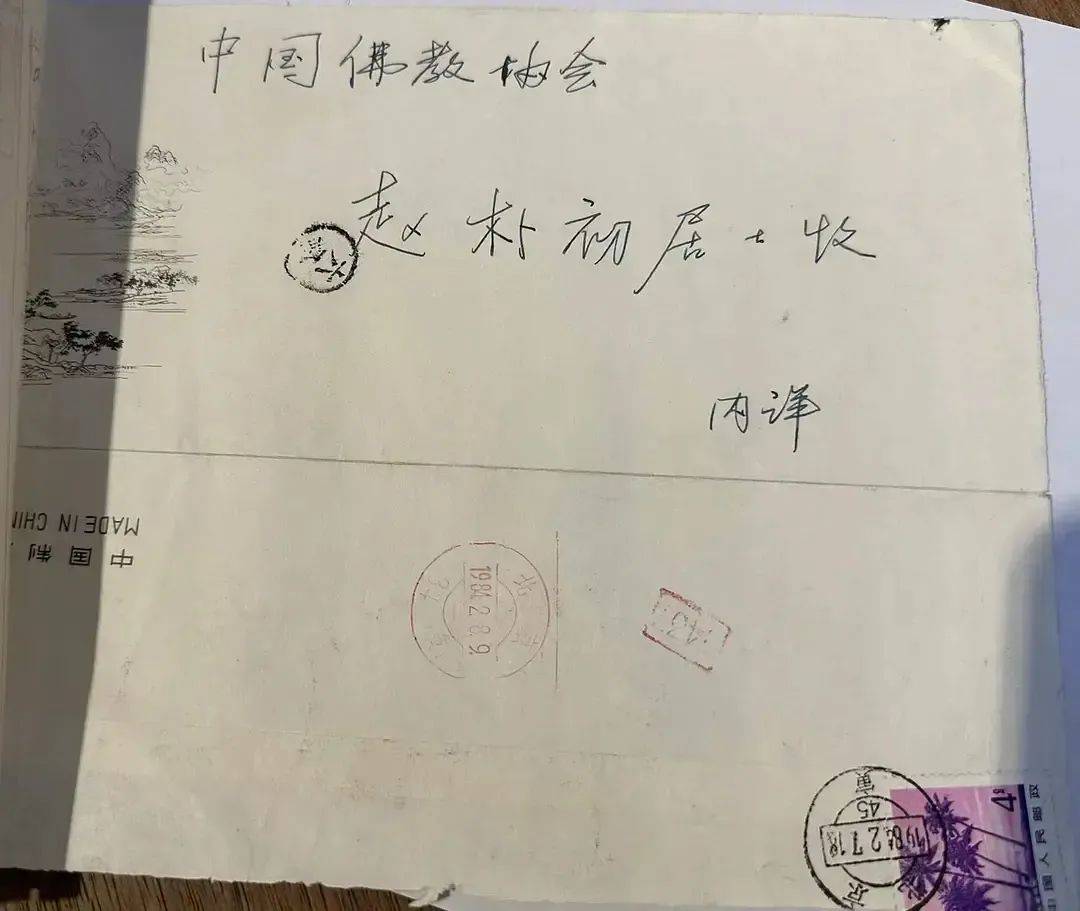 中国佛教协会
赵朴初居士收
内详
MADE IN CHIN
中国制
北京
1984.2.8.9
34
北京
45
1984.2.7.18
4分
中国人民邮政